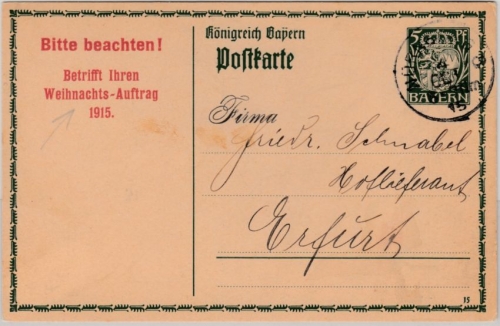 Bitte beachten!
Betrifft Ihren
Weihnachts-Auftrag
1915.
Königreich Bayern
Postkarte
5 PF
BAYERN
Firma
Friedr. Schnabel
Hoflieferant
Erfurt
15